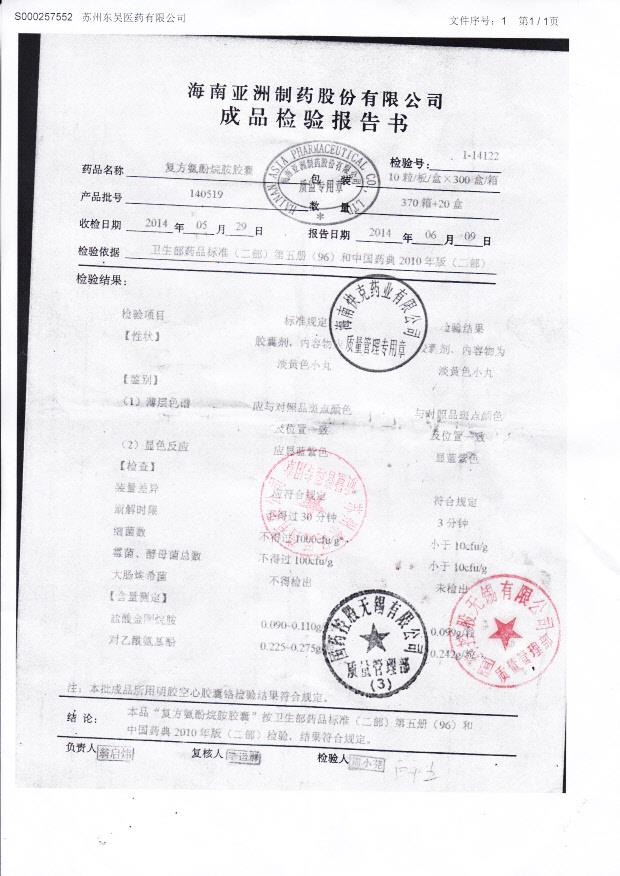 S000257552 苏州东吴医药有限公司 文件序号：1 第1/1页
海南亚洲制药股份有限公司
成品检验报告书
药品名称 复方氨酚烷胺胶囊 包装 10粒/板/盒×300盒/箱
检验号： 1-14122
产品批号 140519 数量 370箱+20盒
收检日期 2014 年 05 月 29 日 报告日期 2014 年 06 月 09 日
检验依据 卫生部药品标准（二部）第五册（96）和中国药典2010年版（二部）
检验结果：
检验项目 标准规定 检验结果
【性状】 胶囊剂，内容物为 胶囊剂，内容物为
淡黄色小丸 淡黄色小丸
【鉴别】
（1）薄层色谱 应与对照品斑点颜色 与对照品斑点颜色
及位置一致 及位置一致
（2）显色反应 应显蓝紫色 显蓝紫色
【检查】
装量差异 应符合规定 符合规定
崩解时限 不得过30分钟 3分钟
细菌数 不得过1000cfu/g 小于10cfu/g
霉菌、酵母菌总数 不得过100cfu/g 小于10cfu/g
大肠埃希菌 不得检出 未检出
【含量测定】
盐酸金刚烷胺 0.090-0.110g 0.099g/粒
对乙酰氨基酚 0.225-0.275g 0.242g/粒
注：本批成品所用明胶空心胶囊铬检验结果符合规定。
结论： 本品“复方氨酚烷胺胶囊”按卫生部药品标准（二部）第五册（96）和
中国药典2010年版（二部）检验，结果符合规定。
负责人 复核人 检验人
HAINAN ASIA PHARMACEUTICAL CO., LTD
海南亚洲制药股份有限公司
质量专用章
海南快克药业有限公司
质量管理专用章
国药控股无锡有限公司
质量管理部
(3)
国药控股无锡有限公司
质量管理部